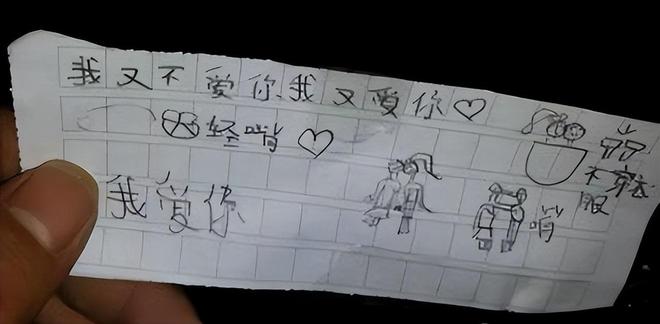 我又不爱你我又爱你♡
轻啃♡
不穿衣
服
我爱你
啃